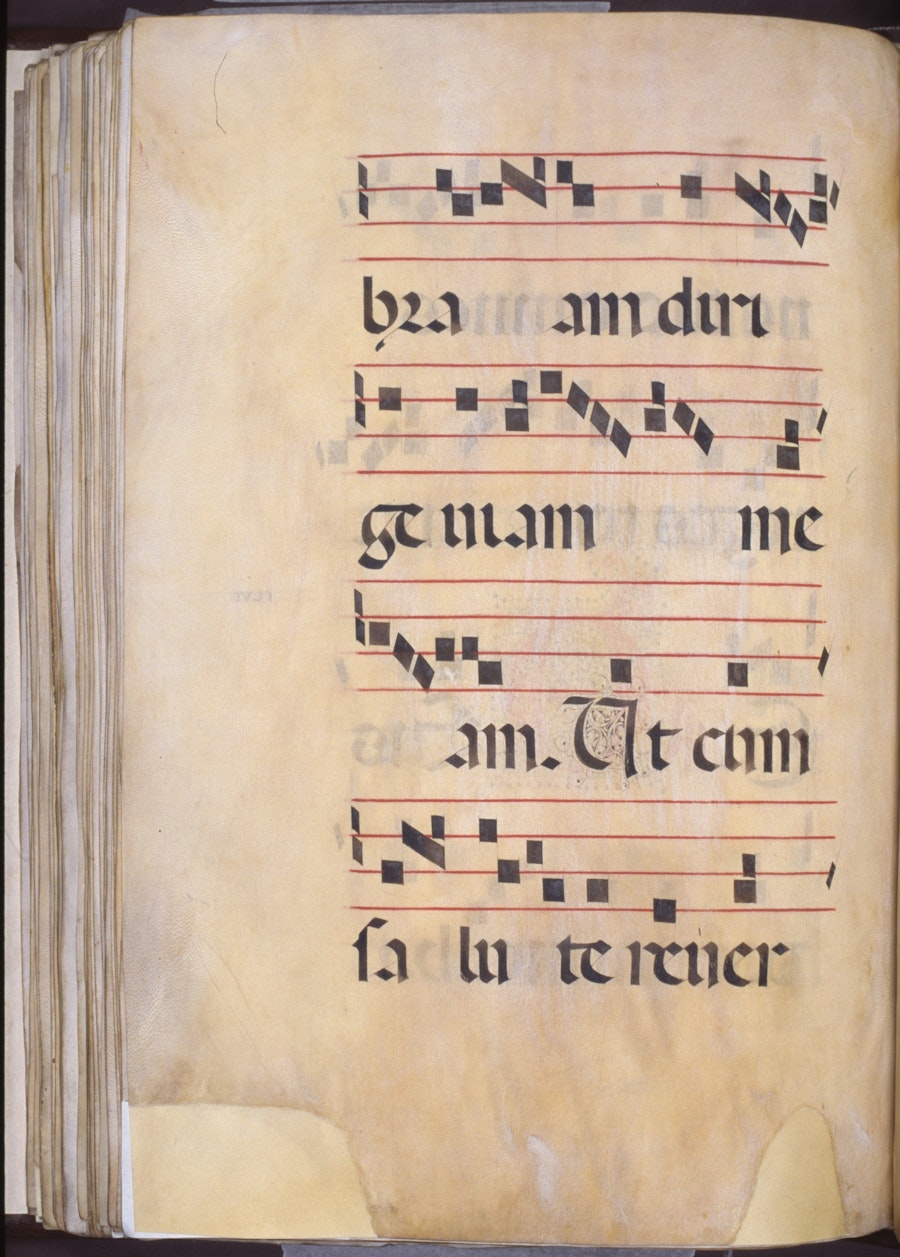 bra am diri
ge viam me
am. Ut cum
salu te reuer